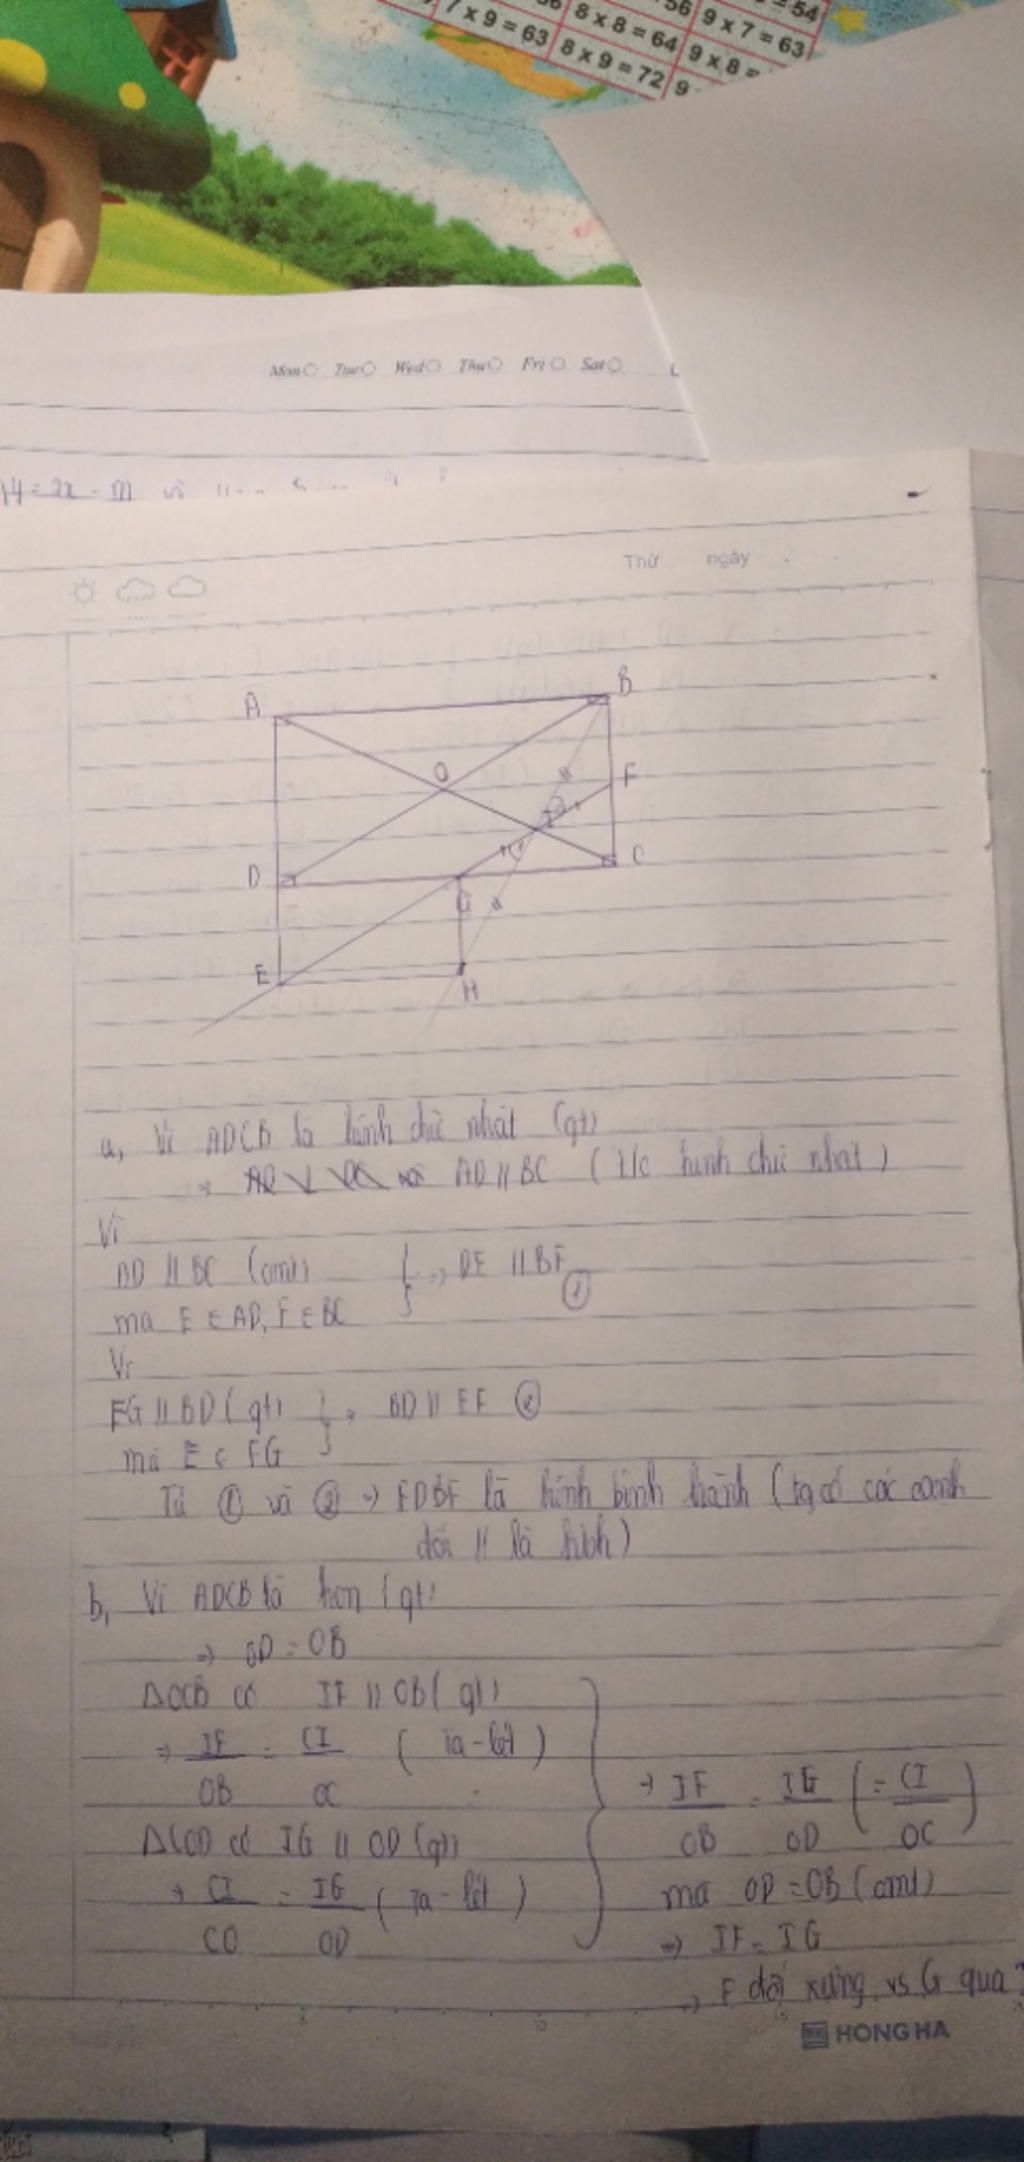 56 9 x 7 = 63
= 54
8 x 8 = 64 9 x 8 =
7 x 9 = 63 8 x 9 = 72 9
Mon Tue Wed Thu Fri Sat
Thứ ngày
A B
O F
I
D C
G
E H
a, Vì ADCB là hình chữ nhật (gt)
AD // BC ( t/c hình chữ nhật )
Vì
AD // BC (cmt) } => DE // BF ①
mà E ∈ AD, F ∈ BC
Vì
FG // BD ( gt) } => BD // EF ②
mà E ∈ FG
Từ ① và ② => EDBF là hình bình hành ( tg có các cạnh
đối // là hbh )
b, Vì ADCB là hcn (gt)
=> OD = OB
ΔOCB có IF // OB ( gt)
=> IF/OB = CI/OC ( Ta-lét )
ΔCOD có IG // OD (gt)
=> CI/CO = IG/OD ( Ta-lét )
=> IF/OB = IG/OD ( = CI/OC )
mà OD = OB (cmt)
=> IF = IG
=> F đối xứng vs G qua I
HONG HA